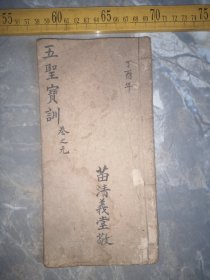 55 60 65 70 75
丁酉年
五聖寶訓
卷之元
苗清義堂敬